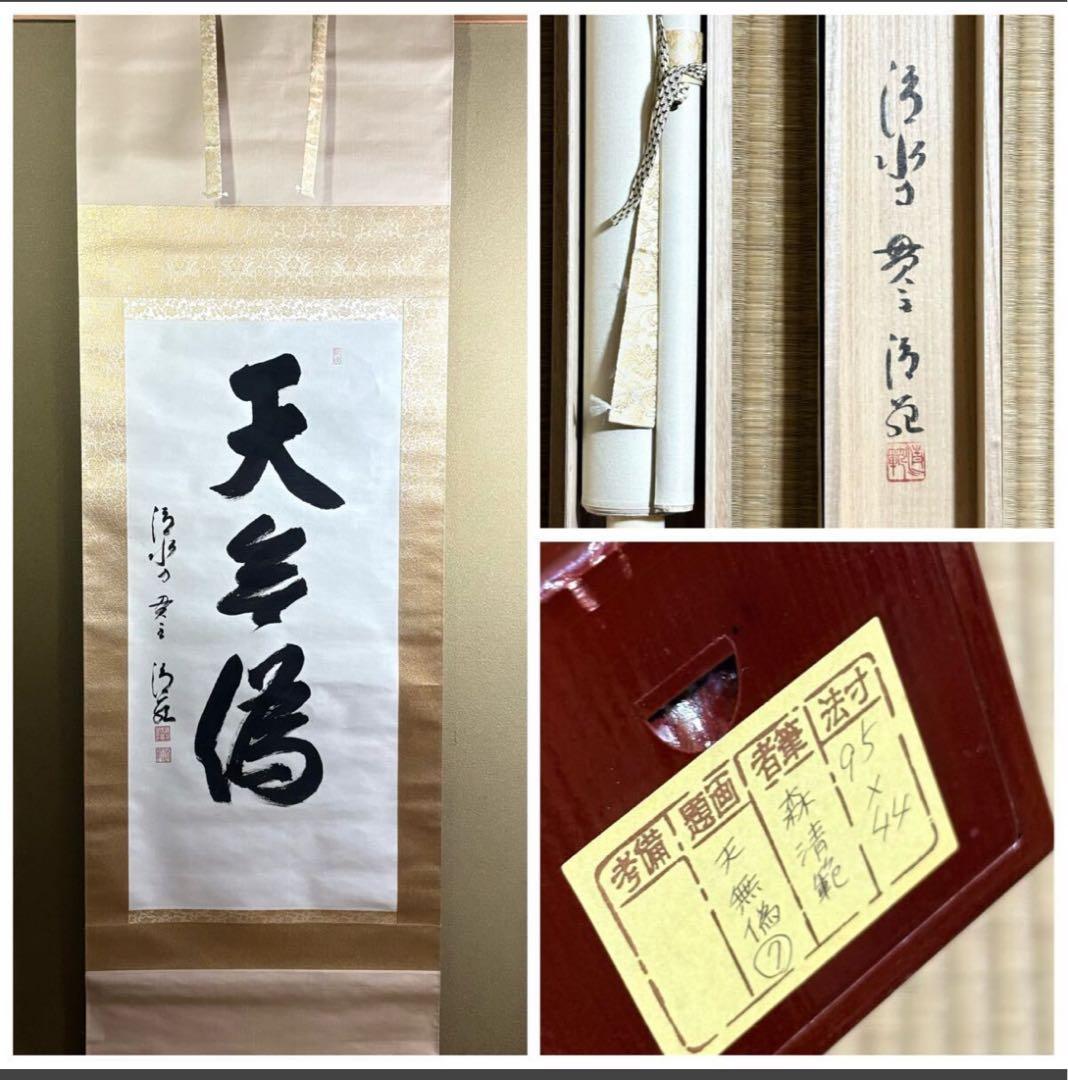 天無偽
清水寺 貫主 清範
清水寺 貫主 清範
清範
寸法
95×44
筆者
森清範
画題
天無偽⑦
備考